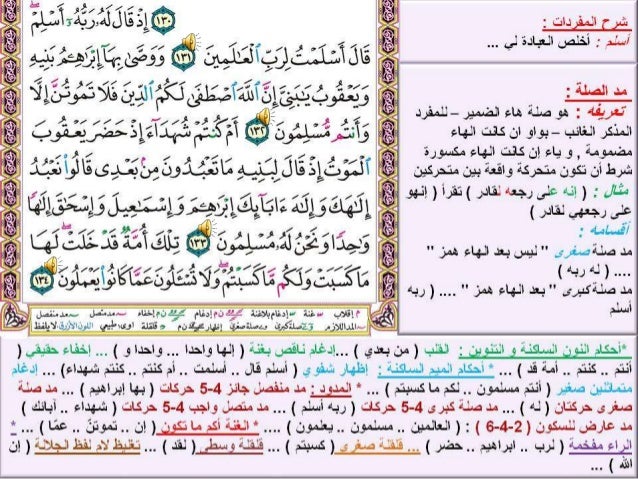 شرح المفردات :
أسلم : أخلص العبادة لي ...
مد الصلة :
تعريفه : هو صلة هاء الضمير – للمفرد
المذكر الغائب – بواو ان كانت الهاء
مضمومة , و ياء إن كانت الهاء مكسورة
شرط أن تكون متحركة واقعة بين متحركين
مثال : ( إنه على رجعه لقادر ) تقرأ ( إنهو
على رجعهي لقادر )
أقسامه :
مد صلة صغرى " ليس بعد الهاء همز "
.... ( له ربه )
مد صلة كبرى " بعد الهاء همز " .... ( ربه
أسلم
١٣٠ إِذْ قَالَ لَهُۥ رَبُّهُۥٓ أَسْلِمْ
قَالَ أَسْلَمْتُ لِرَبِّ ٱلْعَـٰلَمِينَ ١٣١ وَوَصَّىٰ بِهَآ إِبْرَٰهِـۧمُ بَنِيهِ
وَيَعْقُوبُ يَـٰبَنِىَّ إِنَّ ٱللَّهَ ٱصْطَفَىٰ لَكُمُ ٱلدِّينَ فَلَا تَمُوتُنَّ إِلَّا
وَأَنتُم مُّسْلِمُونَ ١٣٢ أَمْ كُنتُمْ شُهَدَآءَ إِذْ حَضَرَ يَعْقُوبَ
ٱلْمَوْتُ إِذْ قَالَ لِبَنِيهِ مَا تَعْبُدُونَ مِنۢ بَعْدِى قَالُوا۟ نَعْبُدُ
إِلَـٰهَكَ وَإِلَـٰهَ ءَابَآئِكَ إِبْرَٰهِـۧمَ وَإِسْمَـٰعِيلَ وَإِسْحَـٰقَ إِلَـٰهًا
وَٰحِدًا وَنَحْنُ لَهُۥ مُسْلِمُونَ ١٣٣ تِلْكَ أُمَّةٌ قَدْ خَلَتْ لَهَا
مَا كَسَبَتْ وَلَكُم مَّا كَسَبْتُمْ وَلَا تُسْـَٔلُونَ عَمَّا كَانُوا۟ يَعْمَلُونَ ١٣٤
*أحكام النون الساكنة و التنوين : القلب ( من بعدي ) ...إدغام ناقص بغنة ( إلها واحدا ... واحدا و ) ... إخفاء حقيقي (
أنتم .. كنتم .. أمة قد ) ... * أحكام الميم الساكنة : إظهار شفوي ( أسلم قال .. أسلمت .. أم كنتم .. كنتم شهداء) ... إدغام
متماثلين صغير ( أنتم مسلمون .. لكم ما كسبتم ) ... * المدود : مد منفصل جائز 4-5 حركات ( بها إبراهيم ) ... مد صلة
صغرى حركتان ( له ) ... مد صلة كبرى 4-5 حركات ( ربه أسلم ) ... مد متصل واجب 4-5 حركات ( شهداء .. آبائك )
مد عارض للسكون ( 2-4-6 ) ( : ( العالمين .. مسلمون .. يعملون ) .... * الغنة أكم ما تكون ( إن .. تموتنّ .. عمّا ) ... *
الراء مفخمة ( لرب .. ابراهيم .. حضر ) ... قلقلة صغرى ( كسبتم ) ... قلقلة وسطى ( لقد ) ... تغليظ لام لفظ الجلالة ( إن
الله ) ...